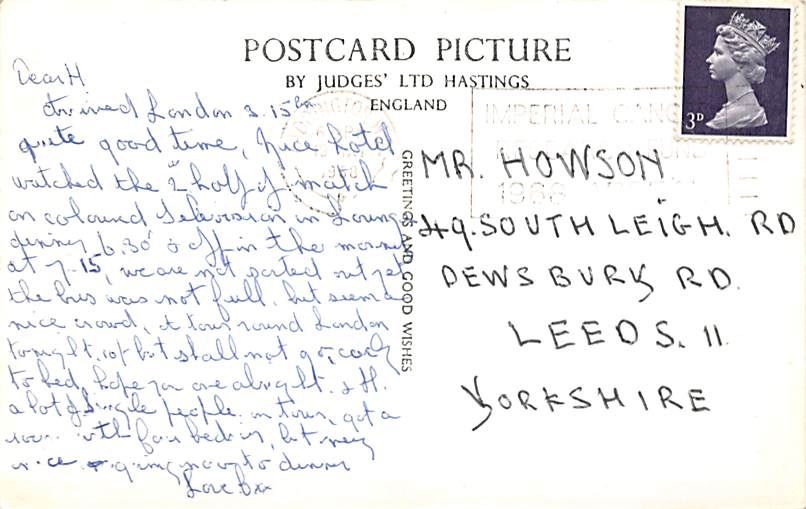 POSTCARD PICTURE
BY JUDGES' LTD HASTINGS
ENGLAND
3D
IMPERIAL
1968
GREETINGS AND GOOD WISHES
Dear H
Arrived London 3.15 pm
quite good time, Nice hotel
watched the 2 half of match
on coloured Television in Lounge
dinner 6.30 & off in the morning
at 7-15, we are not sorted out yet
the bus was not full. but seem a
nice crowd, a tour round London
tonight, but shall not go, early
to bed, hope you are alright. & H.
a lot of single people. on tour, got a
room with four beds in, but very
nice going now to dinner
Love
MR. HOWSON
49. SOUTH LEIGH. RD
DEWSBURY RD.
LEEDS. 11
YORKSHIRE